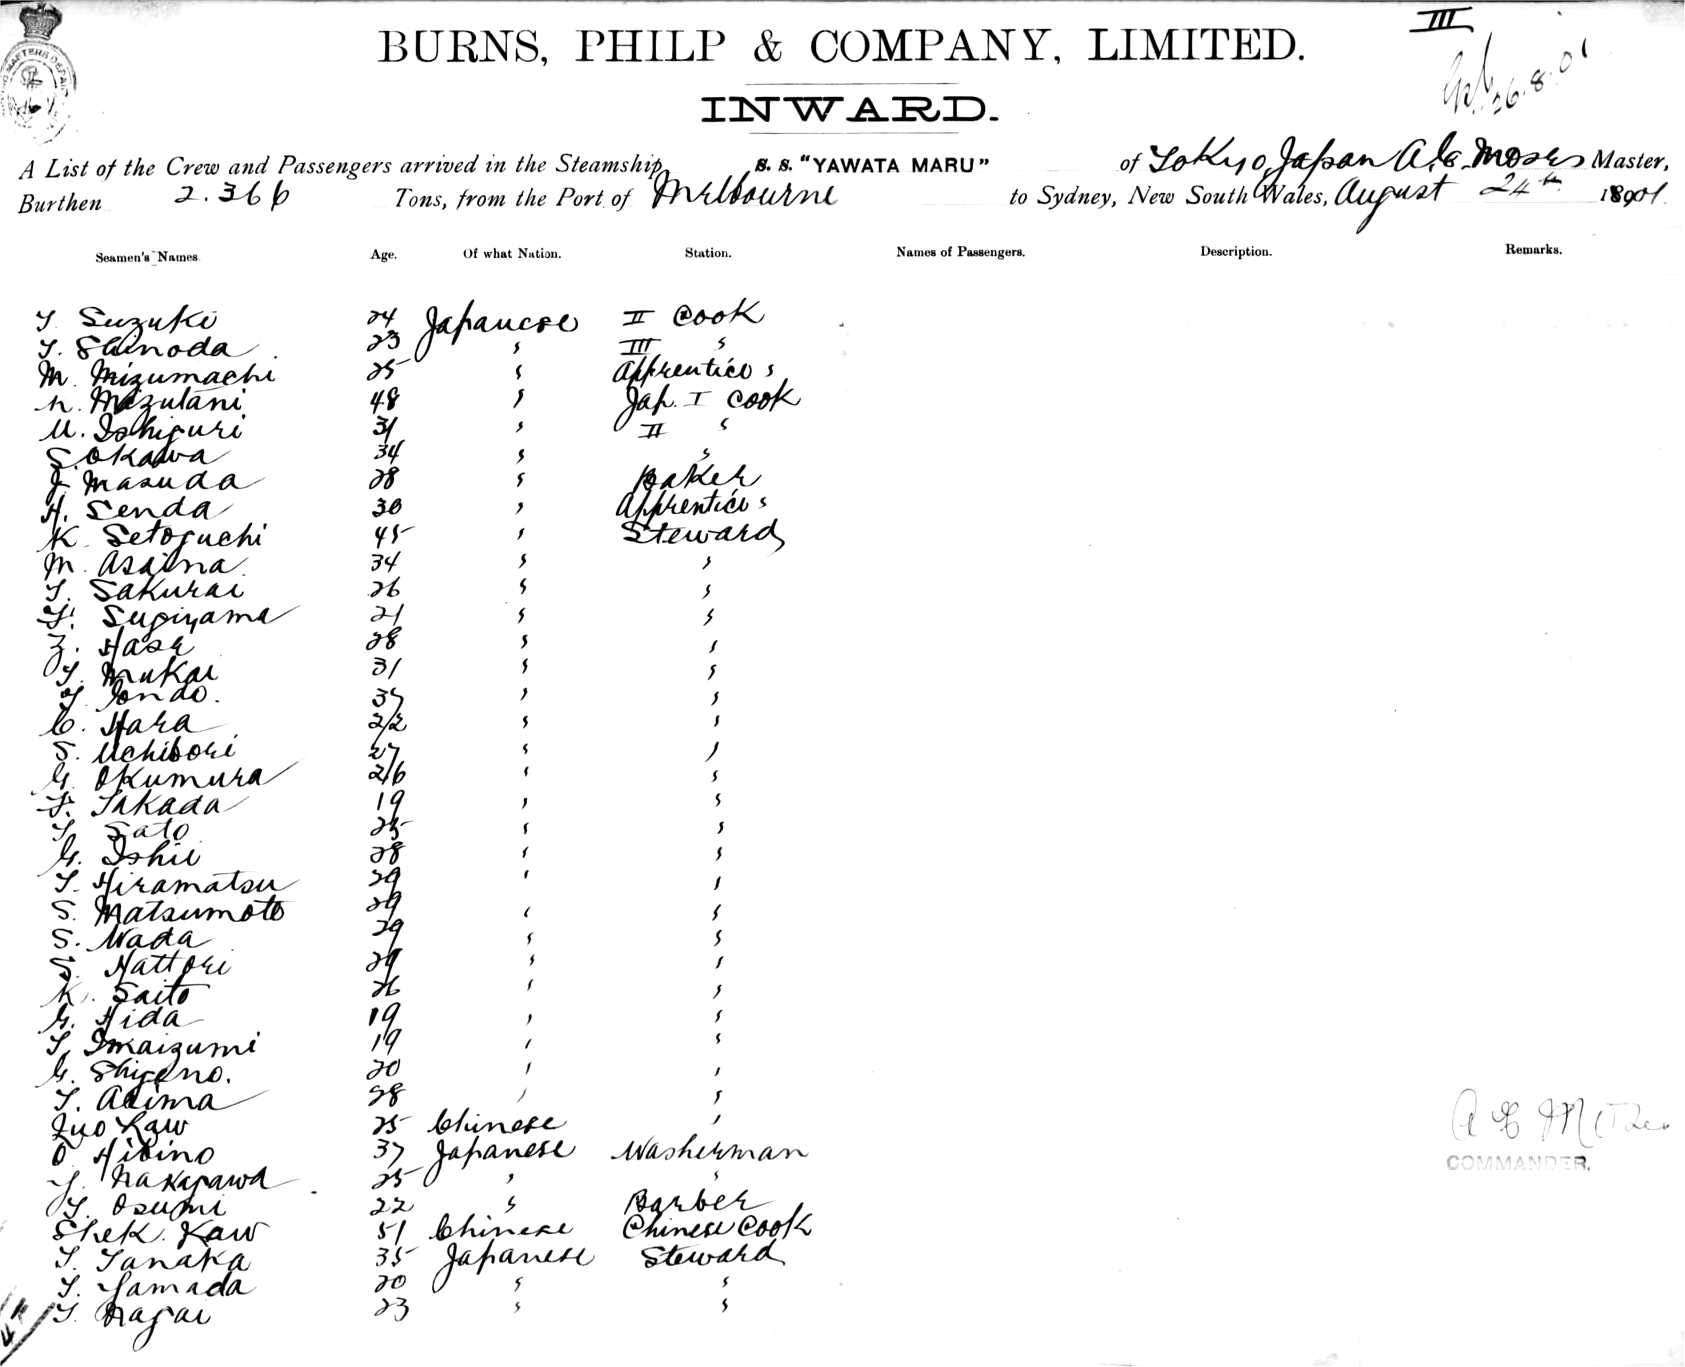 III
26.8.01
BURNS, PHILP & COMPANY, LIMITED.
INWARD.
A List of the Crew and Passengers arrived in the Steamship S. S. "YAWATA MARU" of Tokyo, Japan A. E. Moses Master,
Burthen 2.366 Tons, from the Port of Melbourne to Sydney, New South Wales, August 24th 1901.
Seamen's Names Age. Of what Nation. Station. Names of Passengers. Description. Remarks.
T. Suzuki 24 Japanese II Cook
T. Shinoda 23 " III "
M. Mizumachi 25 " Apprentice "
N. Mizutani 48 " Jap. I Cook
U. Ishiguri 31 " II "
S. Okawa 34 " "
J. Masuda 28 " Baker
H. Senda 30 " Apprentice "
K. Setoguchi 45 " Steward
M. Asaina 34 " "
T. Sakurai 26 " "
F. Sugiyama 21 " "
Z. Hase 28 " "
T. Mukai 31 " "
Y. Condo. 37 " "
C. Hara 22 " "
S. Uchibori 27 " "
G. Okumura 26 " "
F. Takada 19 " "
T. Sato 25 " "
G. Ishii 28 " "
T. Hiramatsu 29 " "
S. Matsumoto 29 " "
S. Wada 29 " "
S. Hattori 29 " "
K. Saito 26 " "
G. Hida 19 " "
T. Imaizumi 19 " "
G. Shigeno. 20 " "
T. Arima 28 " "
Kaw 25 Chinese "
O Hibino 37 Japanese Washerman
Y. Nakagawa 25 " "
T. Osumi 22 " Barber
Shek. Kaw 51 Chinese Chinese Cook
T. Tanaka 35 Japanese Steward
T. Yamada 20 " "
T. Nagai 23 " "
A E Moses
COMMANDER.